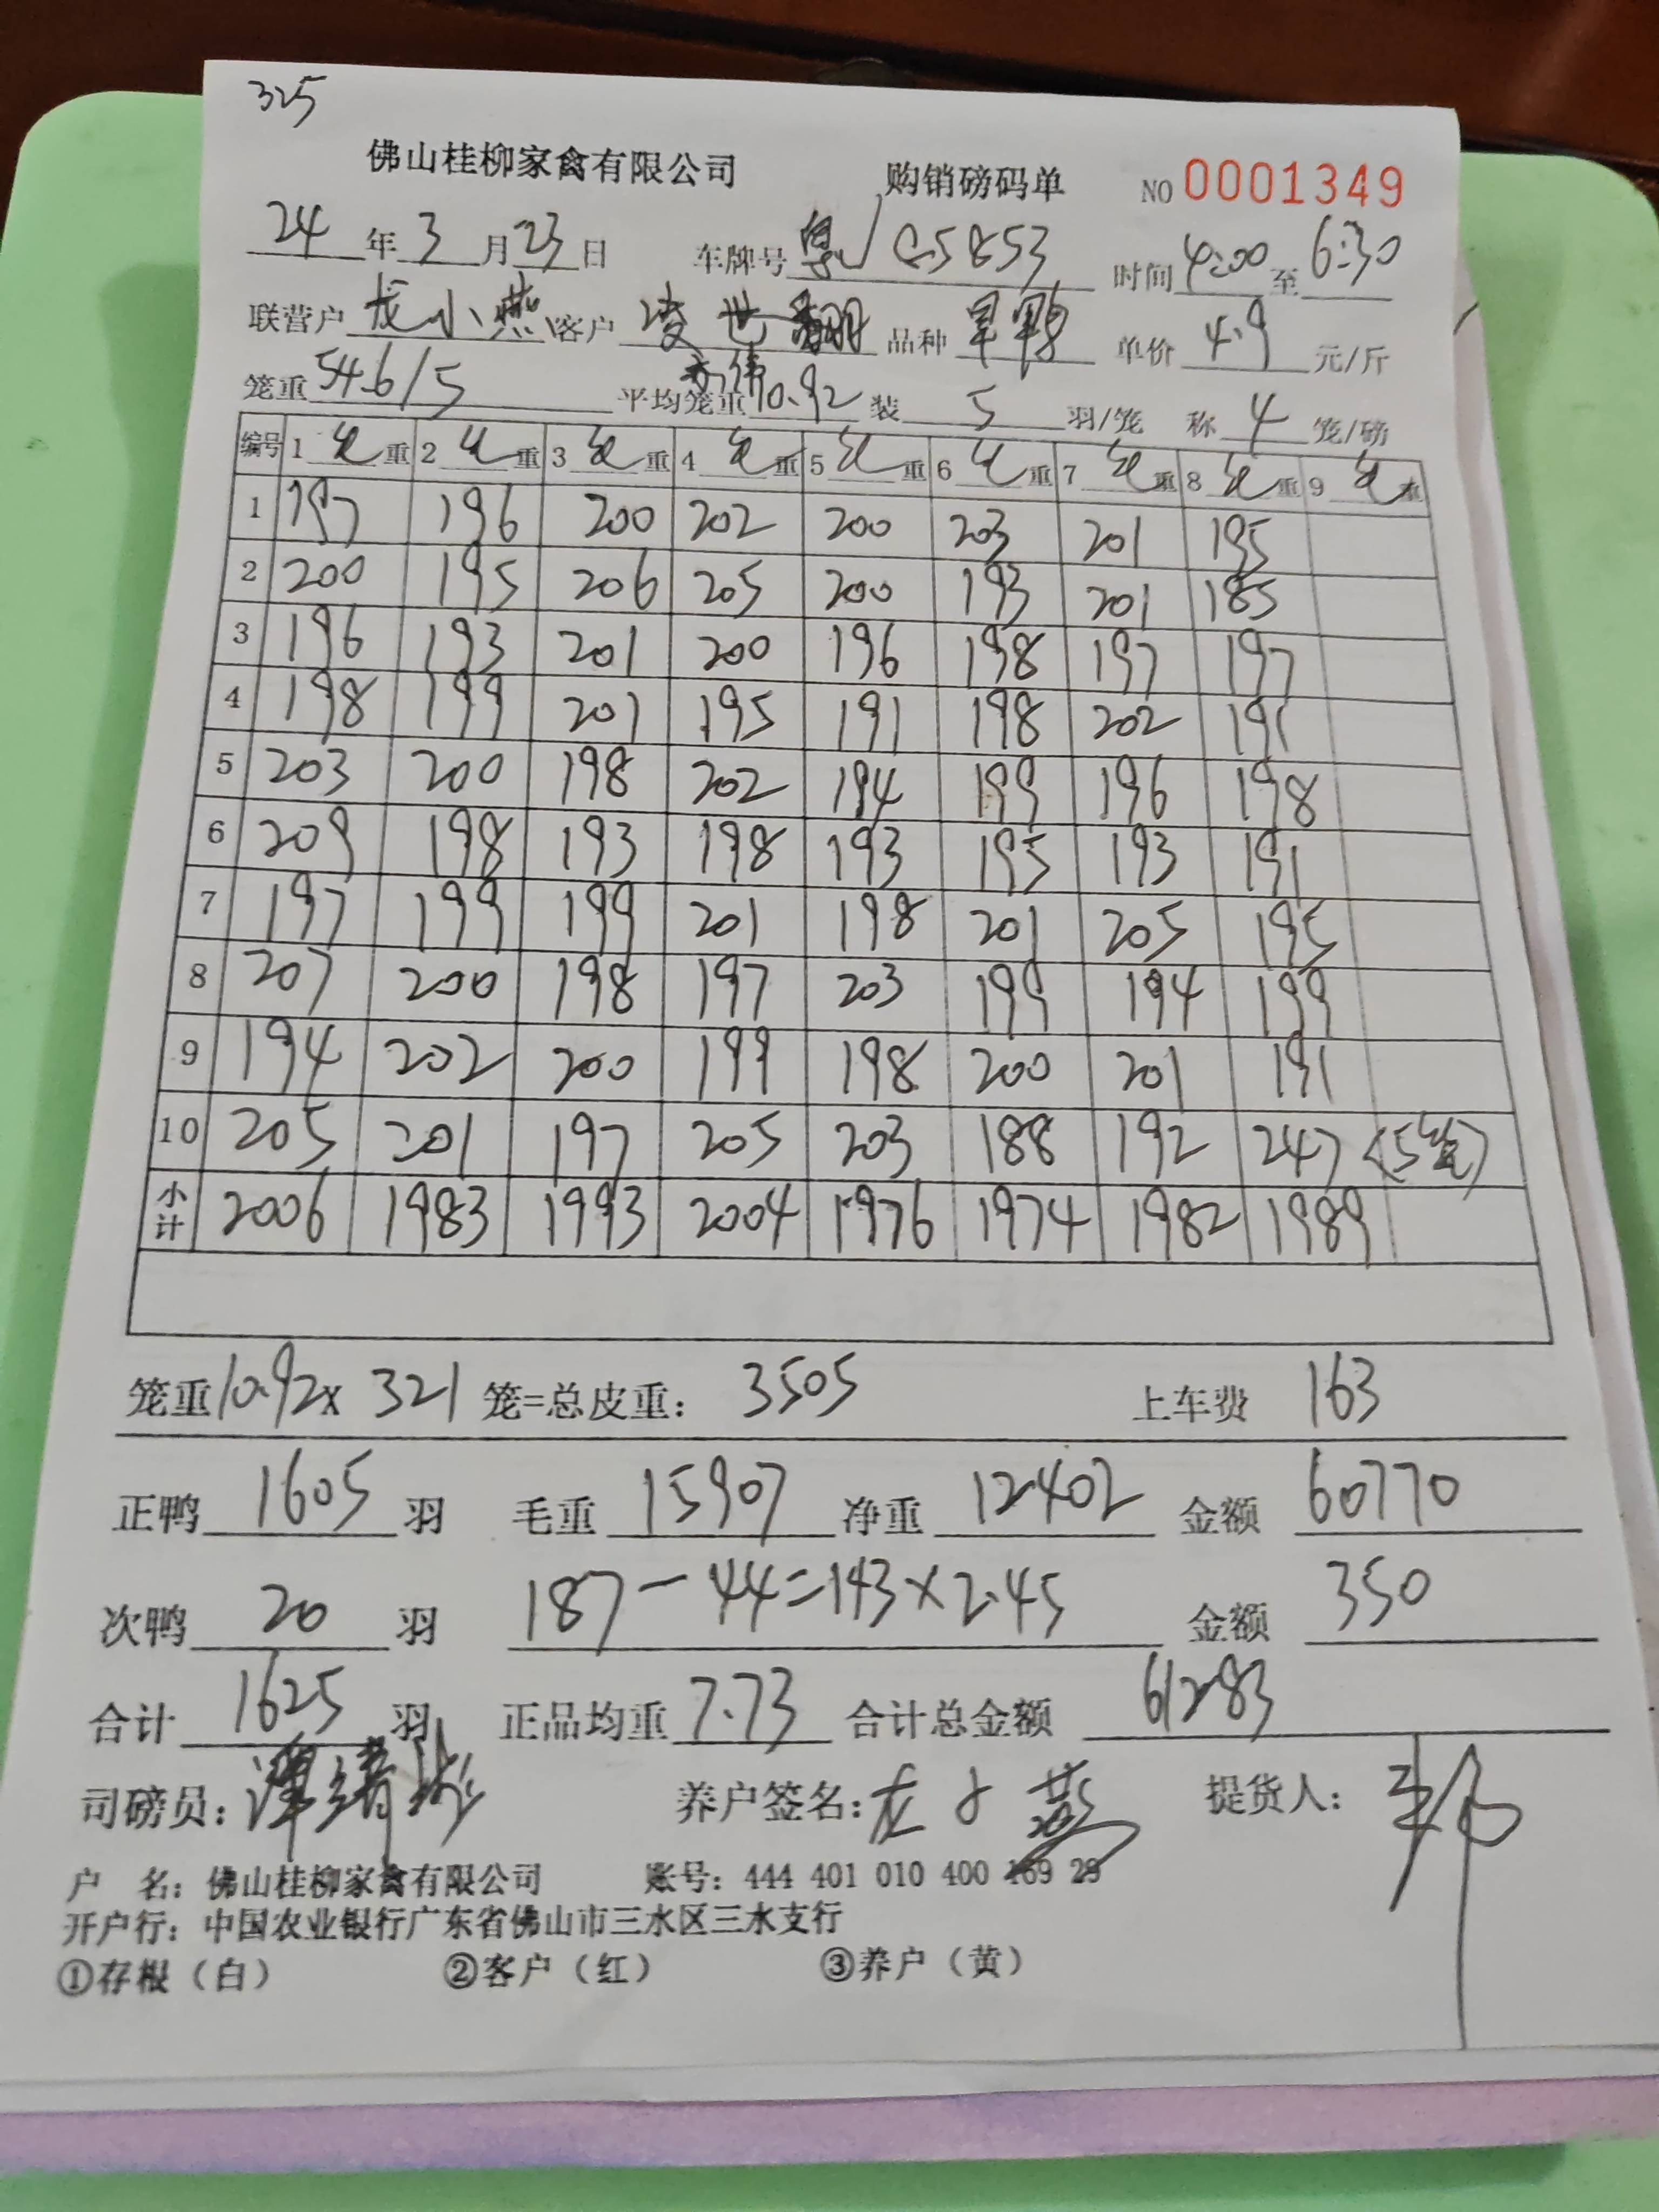 325
佛山桂柳家禽有限公司 购销磅码单 NO 0001349
24年3月23日 车牌号 C5853 时间4:00至6:30
联营户 龙小燕 客户 凌世翻 品种 旱鸭 单价 4.9 元/斤
笼重 54.6/5 平均笼重 10.92 装 5 羽/笼 称 4 笼/磅
编号 1 毛重 2 毛重 3 毛重 4 毛重 5 毛重 6 毛重 7 毛重 8 毛重 9 毛重
1 197 196 200 202 200 203 201 195
2 200 195 206 205 200 193 201 185
3 196 193 201 200 196 198 197 197
4 198 199 201 195 191 198 202 191
5 203 200 198 202 194 199 196 198
6 209 198 193 198 193 195 193 191
7 197 199 199 201 198 201 205 195
8 207 200 198 197 203 199 194 199
9 194 202 200 199 198 200 201 191
10 205 201 197 205 203 188 192 247 (5笼)
小计 2006 1983 1993 2004 1976 1974 1982 1989
笼重 10.92 x 321 笼=总皮重: 3505 上车费 163
正鸭 1605 羽 毛重 15907 净重 12402 金额 60770
次鸭 20 羽 187-44=143×2.45 金额 350
合计 1625 羽 正品均重 7.73 合计总金额 61283
司磅员: 养户签名: 龙小燕 提货人:
户 名: 佛山桂柳家禽有限公司 账号: 444 401 010 400 169 29
开户行: 中国农业银行广东省佛山市三水区三水支行
①存根(白) ②客户(红) ③养户(黄)